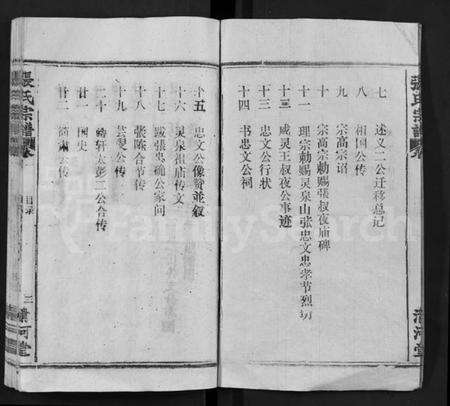 張氏宗譜
清河堂
七 述义二公迁移总记
八 相国公传
九 宗高宗诏
十 宗高宗勅赐张叔夜庙碑
十一 理宗勅赐灵泉山张忠文忠孝节烈坊
十二 威灵王叔夜公事迹
十三 忠文公行状
十四 书忠文公祠
十五 忠文公像贊並叙
十六 灵泉祖庙传文
十七 跋張忠确公家问
十八 張 合节传
十九 芸 公传
二十 轩太彭三公合传
廿一 国史
廿二 公传
張氏宗譜
目录
三
清河堂
FamilySearch